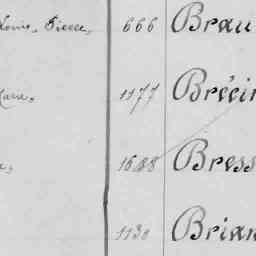 Louis, Pierre, 666 Brau
1177 Brécin
1688 Bress
1130 Brian